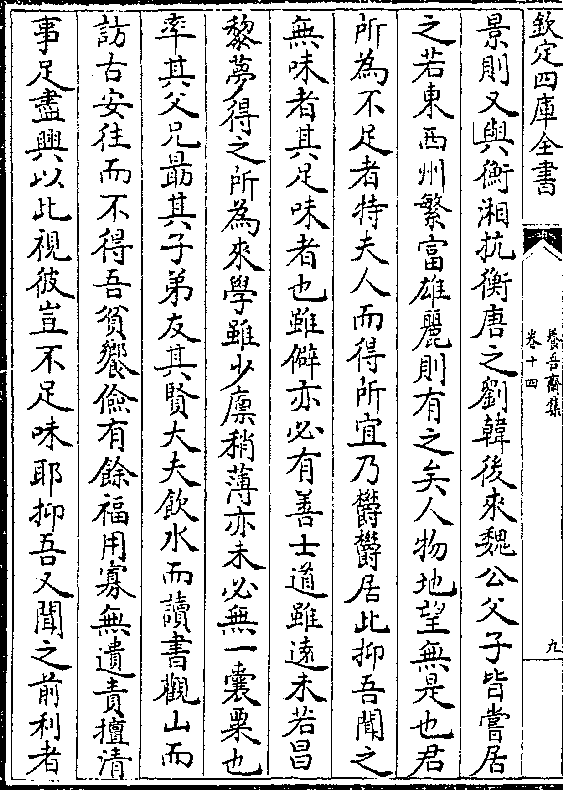 欽定四庫全書
養吾齋集
卷十四
九
景則又與衡湘抗衡唐之劉韓後來魏公父子皆嘗居
之若東西州繁富雄麗則有之矣人物地望無是也君
所為不足者特夫人而得所宜乃欝欝居此抑吾聞之
無味者其足味者也雖僻亦必有善士道雖遠未若昌
黎夢得之所為來學雖少廪稍薄亦未必無一囊粟也
率其父兄勗其子弟友其賢大夫飲水而讀書觀山而
訪古安往而不得吾貧饗儉有餘福用寡無遺責擅清
事足盡興以此視彼豈不足味耶抑吾又聞之前利者